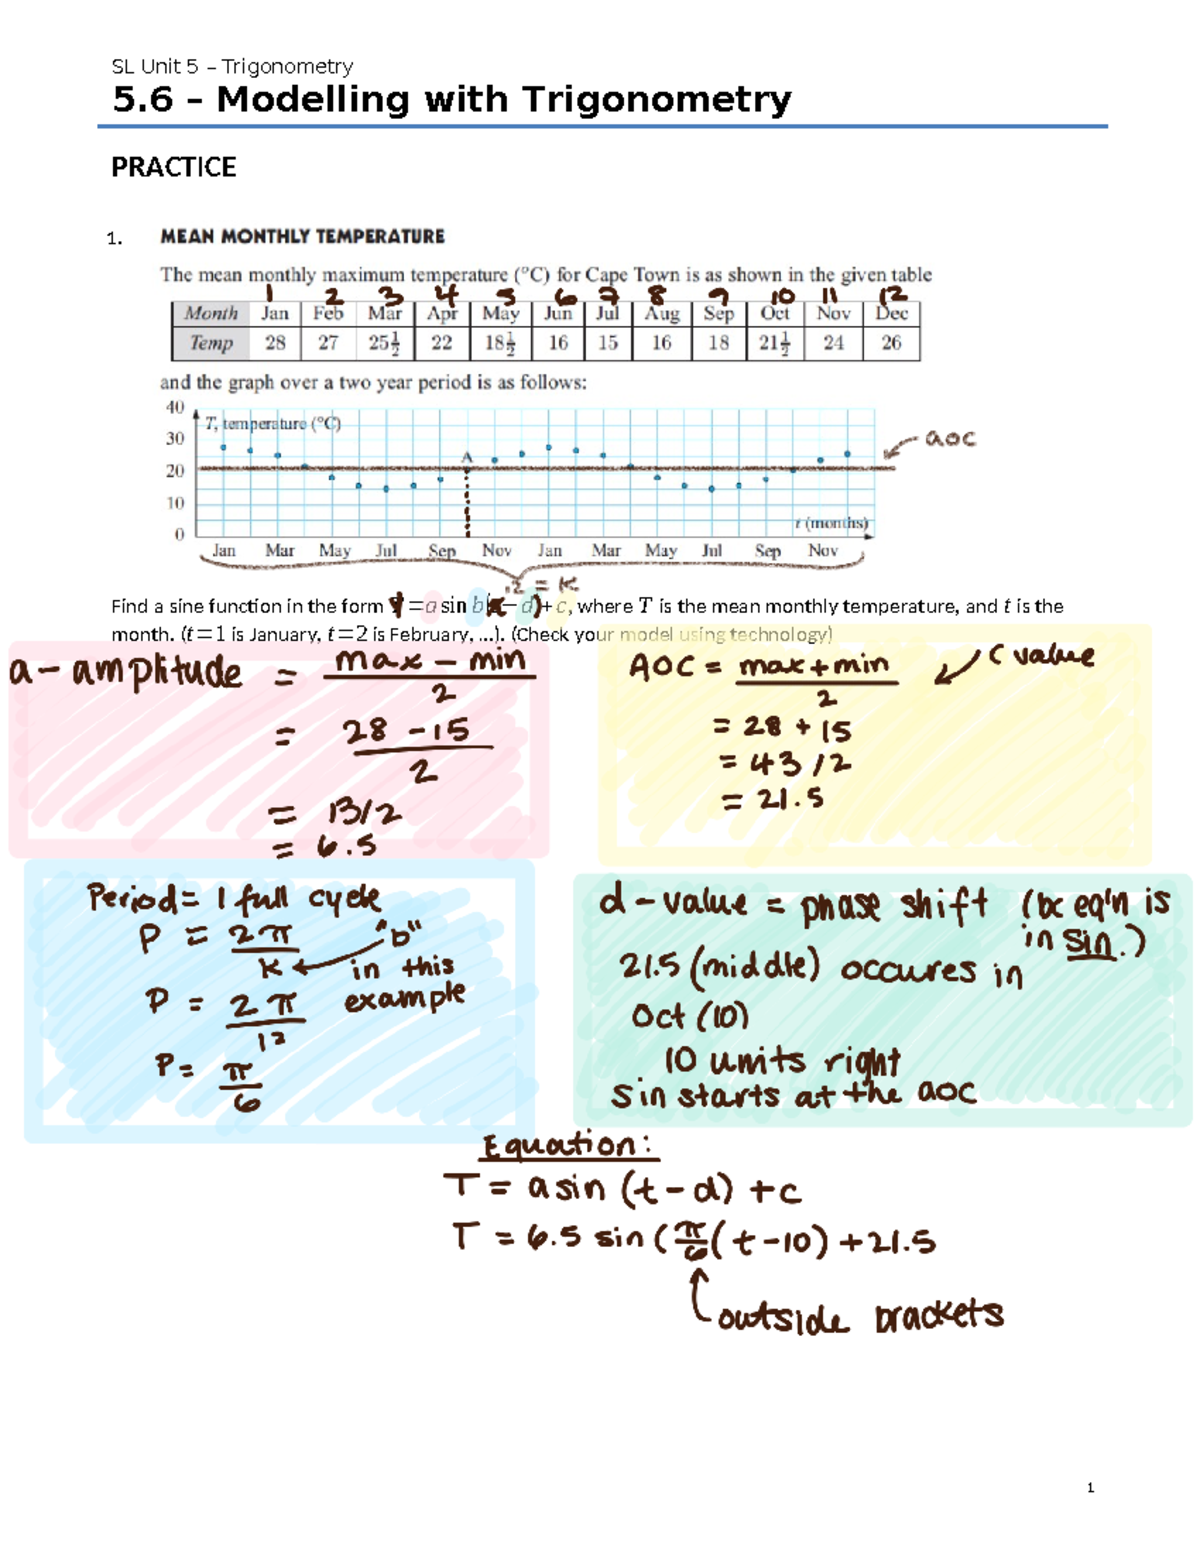 SL Unit 5 – Trigonometry
5.6 – Modelling with Trigonometry
PRACTICE
1. MEAN MONTHLY TEMPERATURE
The mean monthly maximum temperature (°C) for Cape Town is as shown in the given table
1 2 3 4 5 6 7 8 9 10 11 12
Month Jan Feb Mar Apr May Jun Jul Aug Sep Oct Nov Dec
Temp 28 27 25½ 22 18½ 16 15 16 18 21½ 24 26
and the graph over a two year period is as follows:
40
T, temperature (°C)
30
AOC
A
20
10
t (months)
0
Jan Mar May Jul Sep Nov Jan Mar May Jul Sep Nov
12 = K
Find a sine function in the form = a sin b( − d) + c, where T is the mean monthly temperature, and t is the
month. (t=1 is January, t=2 is February, ...). (Check your model using technology)
a - amplitude = max - min
2
= 28 - 15
2
= 13/2
= 6.5
AOC = max + min
2
c value
= 28 + 15
= 43/2
= 21.5
Period = 1 full cycle
P = 2π
K
"b"
in this
example
P = 2π
12
P = π
6
d - value = phase shift (bc eq'n is
in sin.)
21.5 (middle) occures in
Oct (10)
10 units right
Sin starts at the AOC
Equation:
T = a sin (t - d) + c
T = 6.5 sin (π/6 (t - 10) + 21.5
outside brackets
1